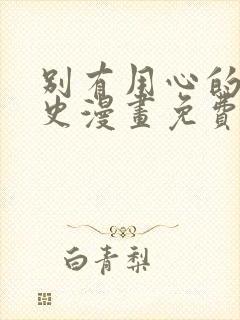 别有用心的
史漫畫免費
白青梨